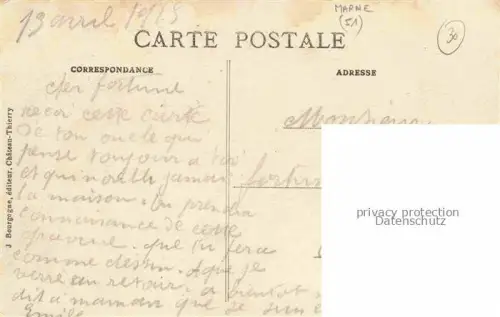 13 avril 1915
MARNE
(51)
30
CARTE POSTALE
CORRESPONDANCE
ADRESSE
J. Bourgogne, éditeur, Château-Thierry
cher fortuné
recoi cette carte
de ton oncle qui
pense toujour a toi
et qui noubli jamai
la maison. tu prendra
connaisance de cette
que tu fera
comme dessin. A que je
verré au retour. a bientot
dit a maman que je sui
Emile
Monsieur
fortun
privacy protection
Datenschutz